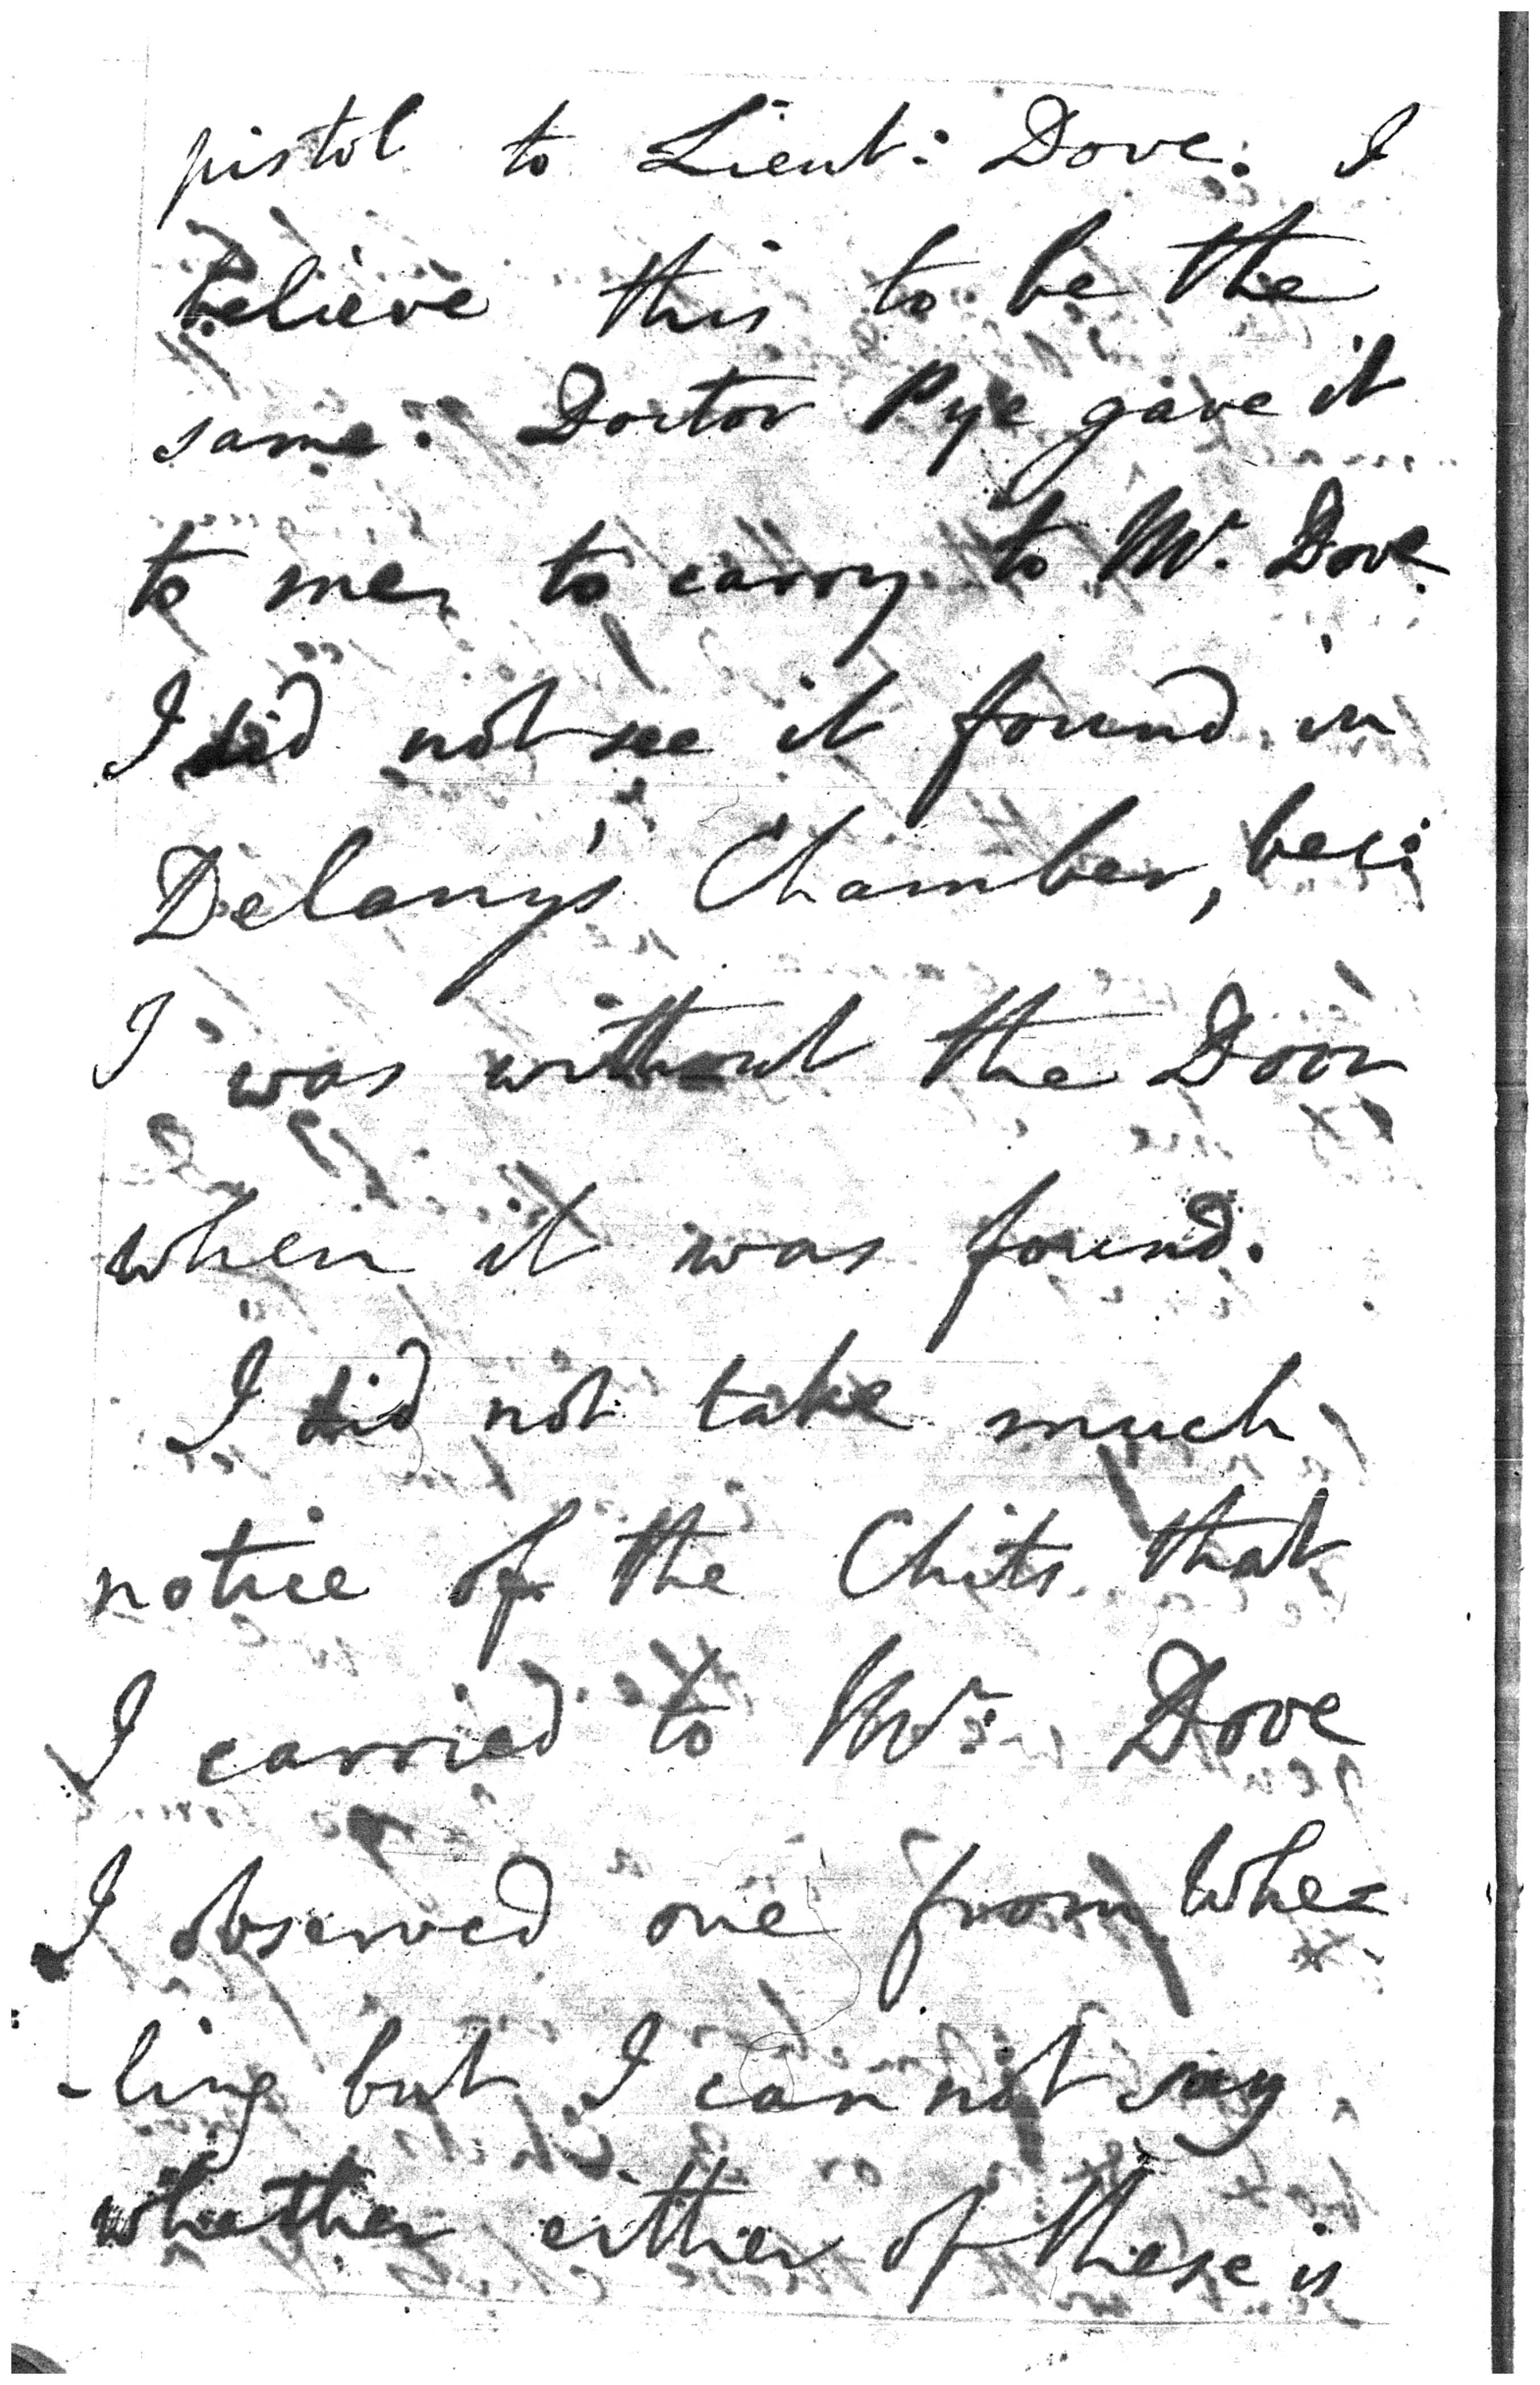 pistol to Lieut: Dove. I
believe this to be the
same. Doctor Pye gave it
to me, to carry to Mr. Dove.
I did not see it found in
Delany's Chamber, bec:
I was without the Door
when it was found.
I did not take much
notice of the Chits that
I carried to Mr. Dove
I observed one from Whe=
-ling but I can not say
whether either of these is